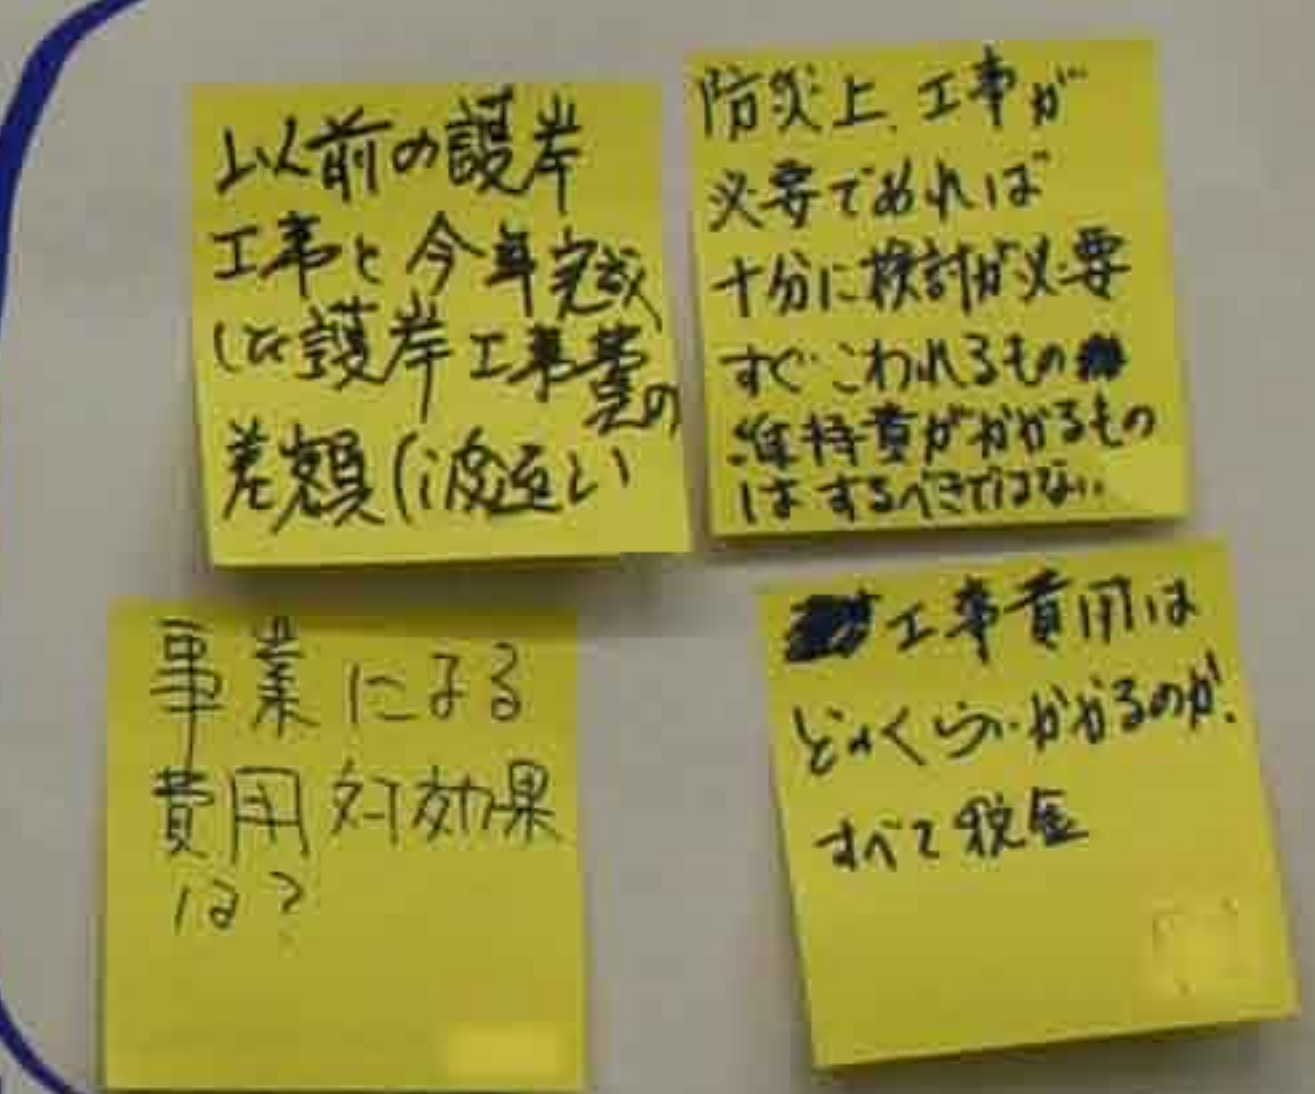 以前の護岸
工事と今年完成
した護岸工事費の
差額(波返い
防災上、工事が
必要であれば
十分に検討が必要
すぐこわれるもの
維持費がかかるもの
はするべきではない。
事業による
費用対効果
は?
工事費用は
どのくらいかかるのか.
すべて税金